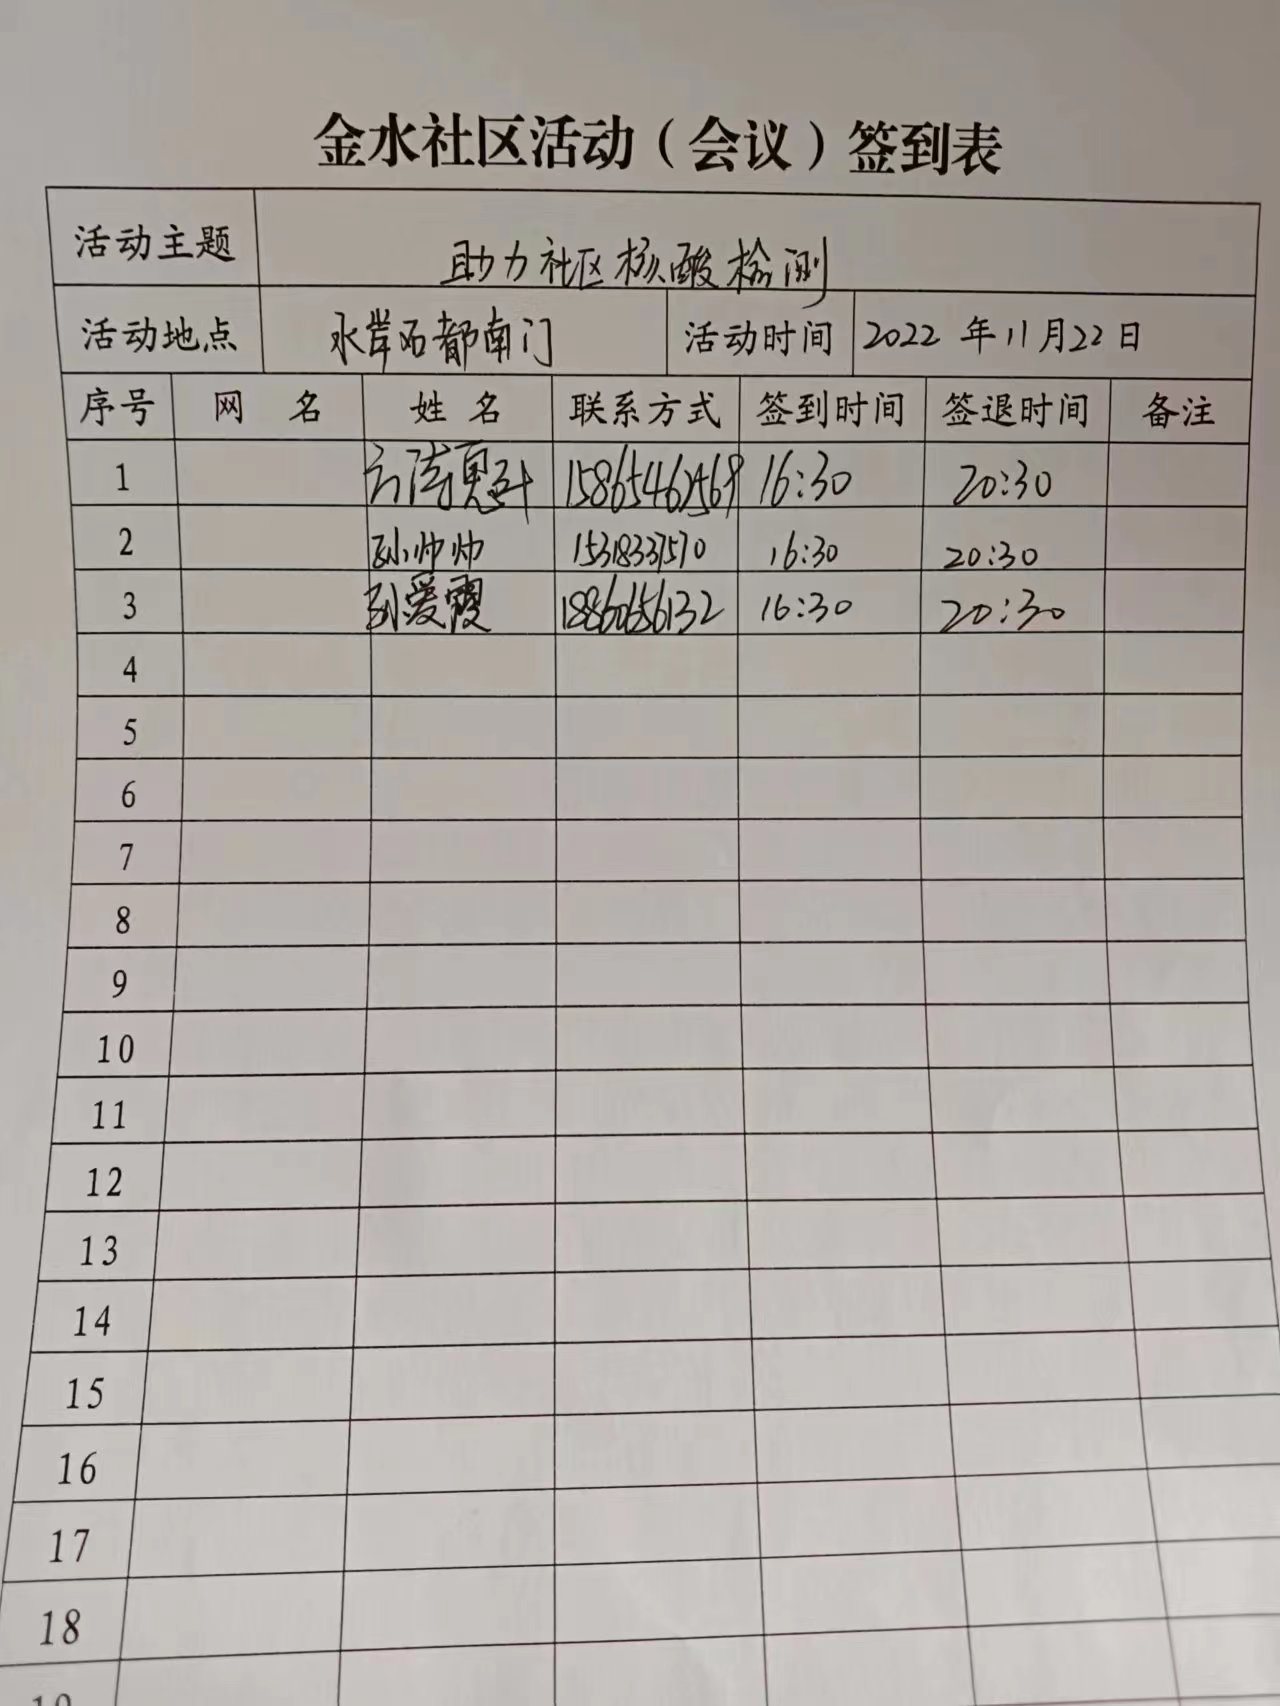 金水社区活动（会议）签到表
活动主题 助力社区核酸检测
活动地点 水岸西都南门 活动时间 2022年11月22日
序号 网名 姓名 联系方式 签到时间 签退时间 备注
1 16:30 20:30
2 孙帅帅 15318337570 16:30 20:30
3 刘爱霞 18860656132 16:30 20:30
4
5
6
7
8
9
10
11
12
13
14
15
16
17
18
19